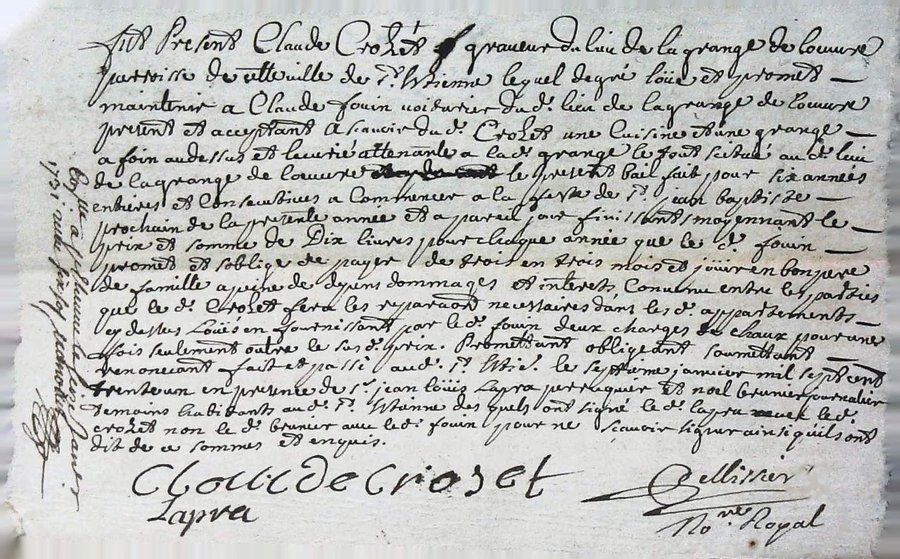 fut Present Claude Crozet graveur du lieu de la grange de louvre
parroisse de de St. Etienne lequel de gré loüe et promet
maintenir a Claude fouin voiturier du d. lieu de la grange de louvre
present et acceptant a scavoir du d. Crozet une Cuisine et une grange
a foin au dessus et lecurie attenante a la d. grange le tout scitué au d. lieu
de la grange de louvre le present bail fait pour six années
entieres et Consecutives a Commencer a la feste de St. jean baptiste
prochain de la presente année et a pareil jour finissants moyennant le
prix et somme de Dix livres pour chaque année que le d. fouin
promet et soblige de payer de trois en trois mois et joüir en bon pere
de famille a peine de depens dommages et interets Convenu entre les parties
que le d. Crozet fera les reparaons necessaires dans les d. appartements
cy dessus Loüés en fournissant par le d. fouin deux charges de chaux pour une
fois seulement outre le sus d. prix. Promettant obligeant soumettant
renonceant fait et passé au d. St. Etie. le septieme janvier mil sept cent
trente un en presence de Sr. jean Loüis Lapra perruquier et noel brunier journalier
temoins habitants au d. St. Etienne des quels ont signé le d. lapra avec le d.
Crozet non le d. brunier avec le d. fouin pour ne scavoir signer ainsi quils ont
dit de ce sommes et enquis.
Claude Crozet
Lapra
Pellissier
No.re Royal
Janvier
1731